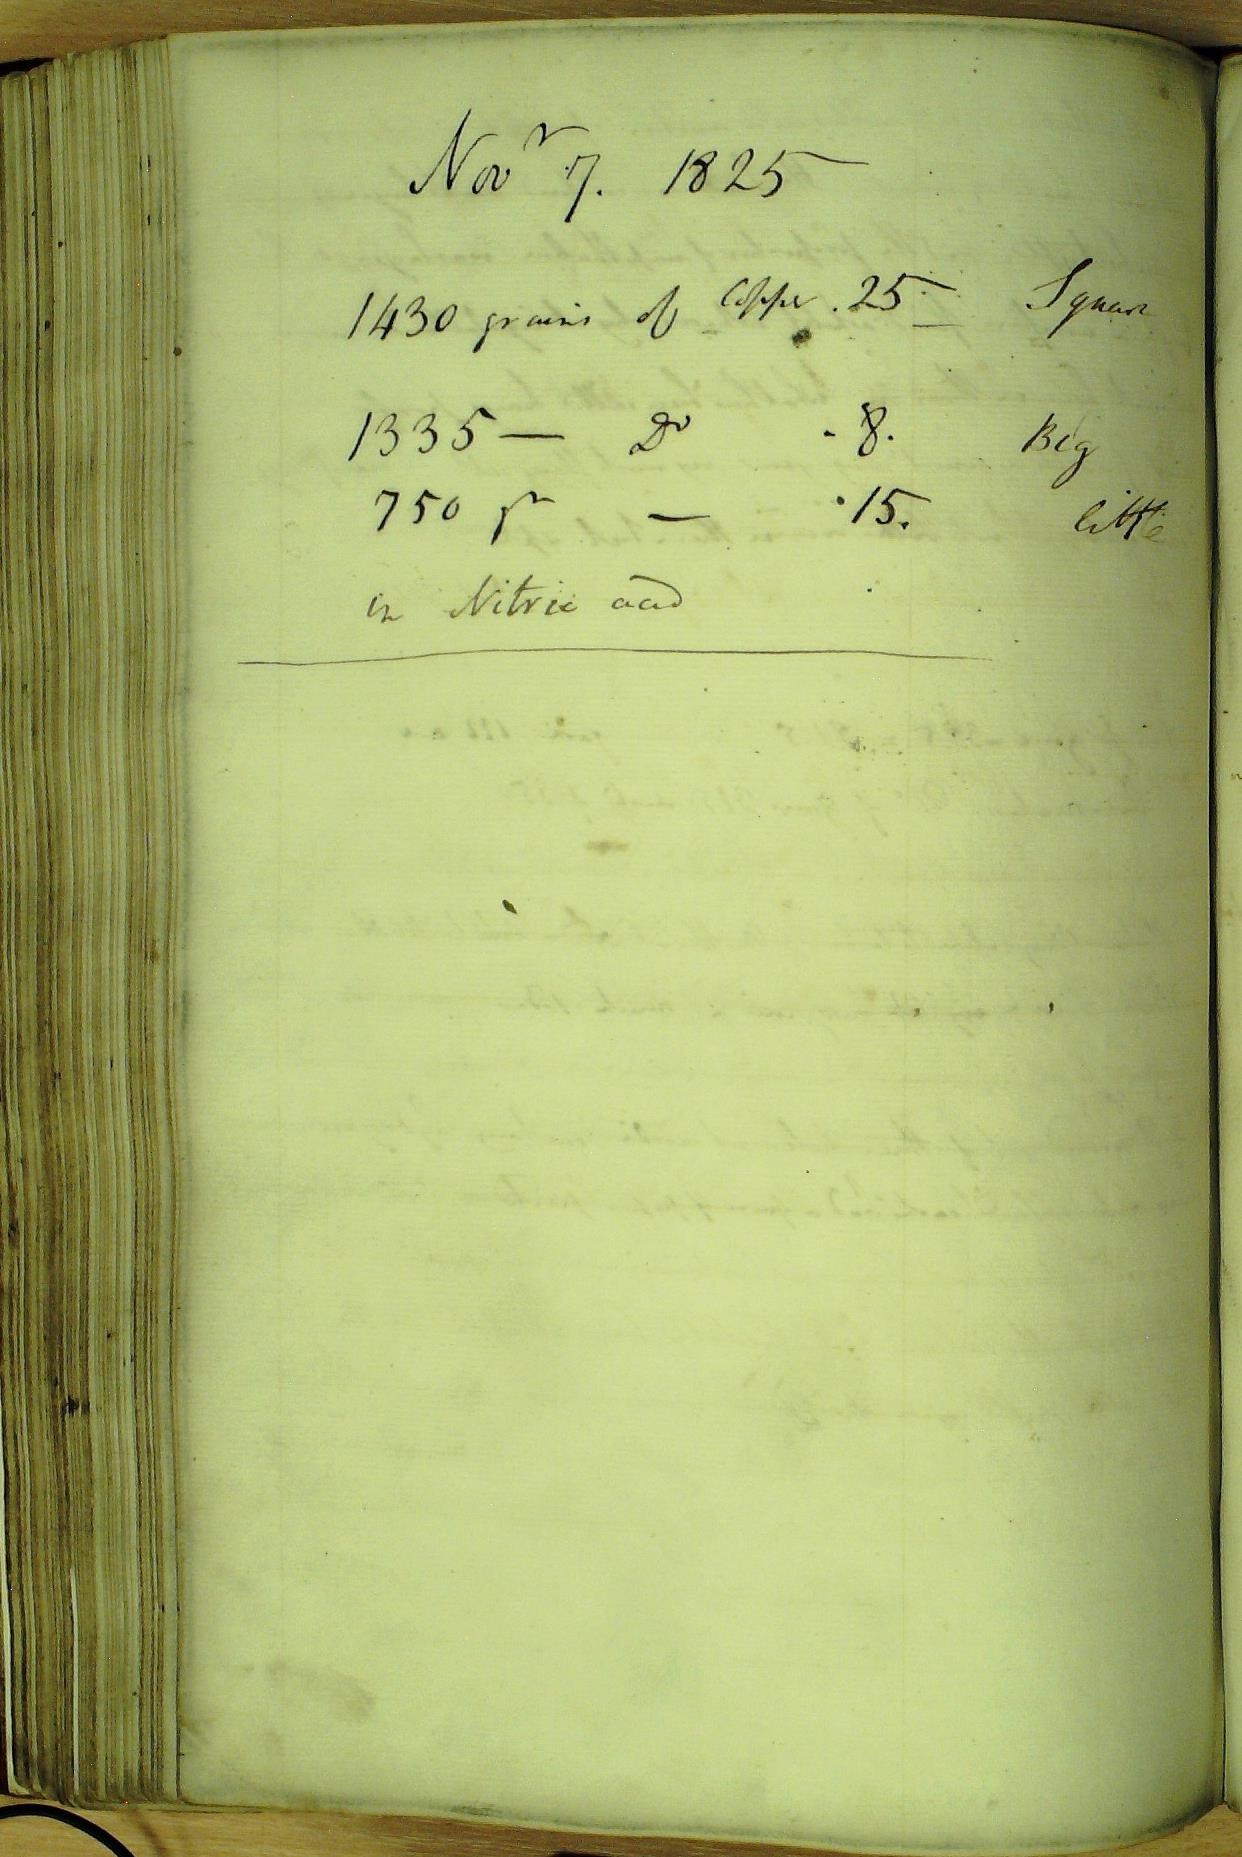 Novr 7. 1825
1430 grains of Copper . 25 — Square
1335 — Do . 8. Big
750 gr — . 15. little
in Nitric acid